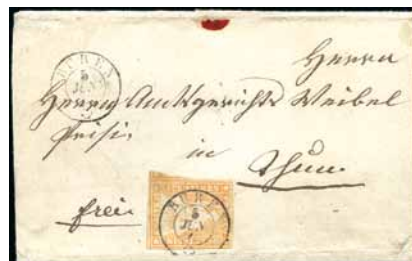 BÜREN
5
JUN
Herrn
Herrn Amtsgerichts Weibel
in
Thun.
frei.
BÜREN
5
JUN